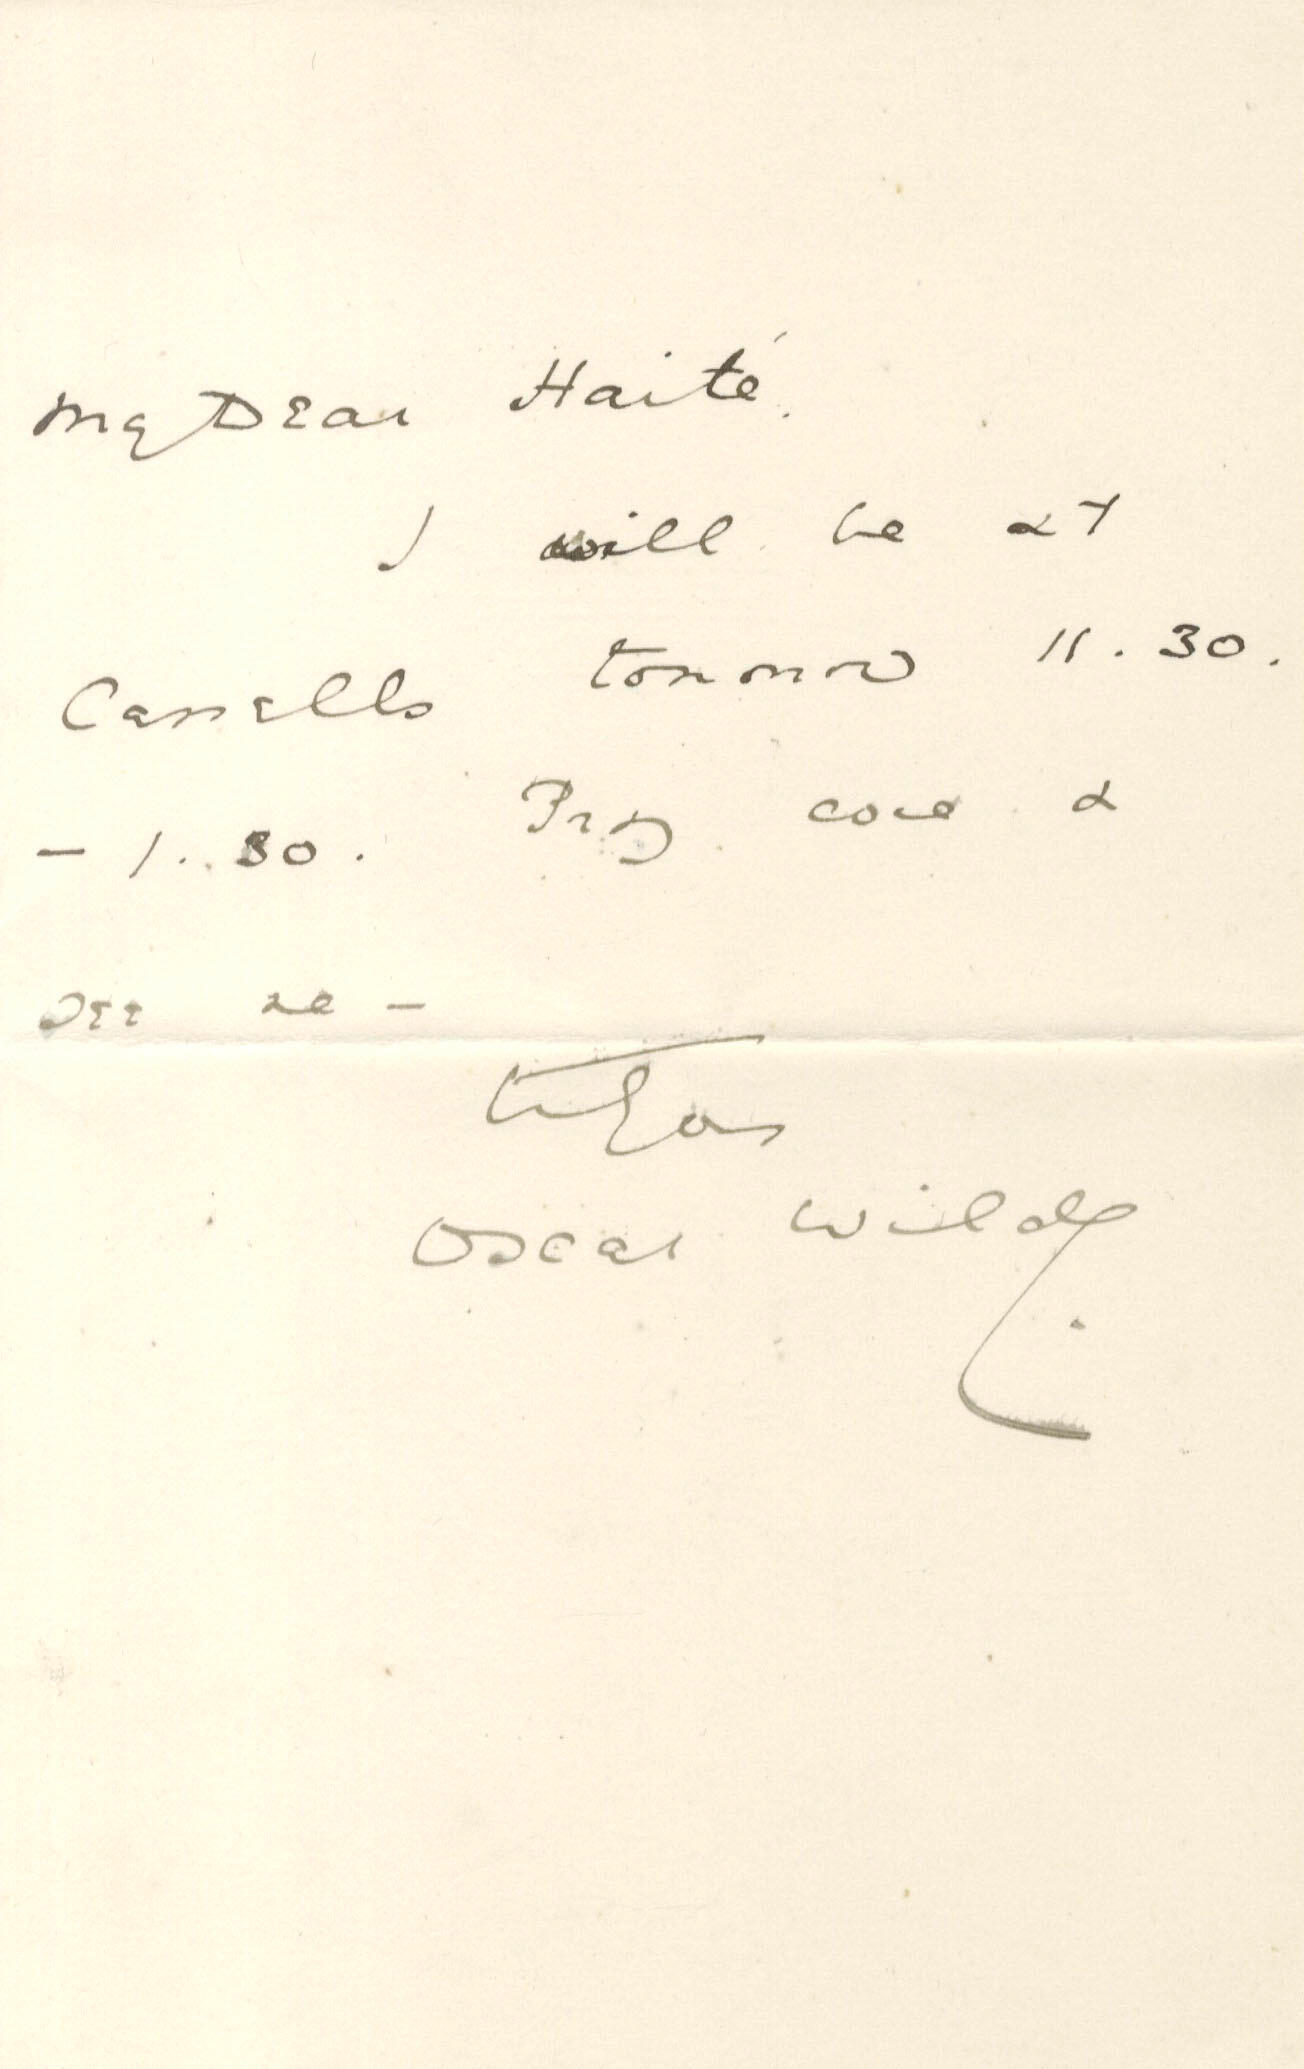 My Dear Haité.
I will be at
Cassells tomorrow 11.30.
– 1.30. Pray come &
see me –
Truly yours
Oscar Wilde